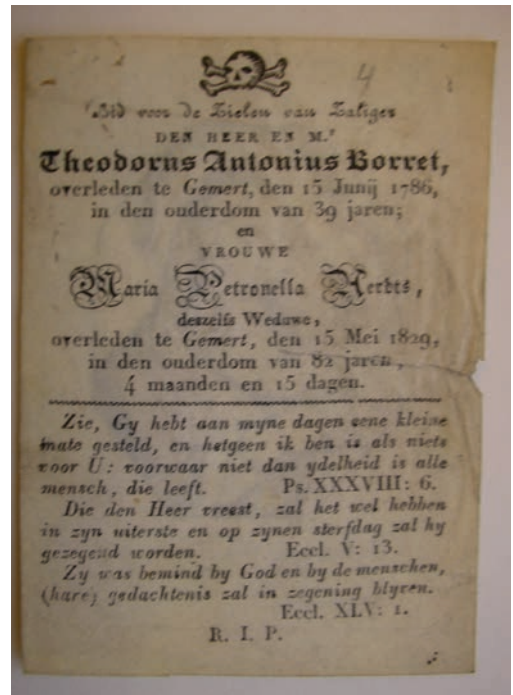 4
Bid voor de Zielen van Zaliger
DEN HEER EN M.r
Theodorus Antonius Borret,
overleden te Gemert, den 15 Junij 1786,
in den ouderdom van 39 jaren;
en
VROUWE
Maria Petronella Aerbts,
deszelfs Weduwe,
overleden te Gemert, den 15 Mei 1829,
in den ouderdom van 82 jaren,
4 maanden en 15 dagen.
Zie, Gy hebt aan myne dagen eene kleine
mate gesteld, en hetgeen ik ben is als niets
voor U: voorwaar niet dan ydelheid is alle
mensch, die leeft. Ps. XXXVIII: 6.
Die den Heer vreest, zal het wel hebben
in zyn uiterste en op zynen sterfdag zal hy
gezegend worden. Eccl. V: 13.
Zy was bemind by God en by de menschen,
(hare) gedachtenis zal in zegening blyven.
Eccl. XLV: 1.
R. I. P.